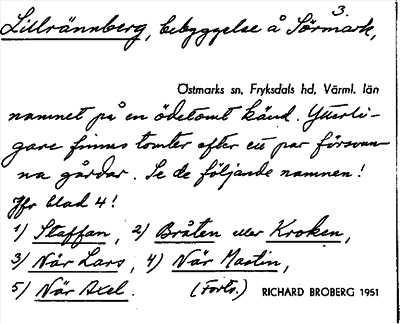 3.
Lillrännberg, bebyggelse å Sörmark,
Östmarks sn, Fryksdals hd, Värml. län
namnet på en ödetomt känd. Ytterli-
gare finnes tomter efter ett par försvun-
na gårdar. Se de följande namnen!
Jfr blad 4!
1) Staffan, 2) Bråten eller Kroken,
3) När Lars, 4) När Martin,
5) När Axel. (Forts.) RICHARD BROBERG 1951